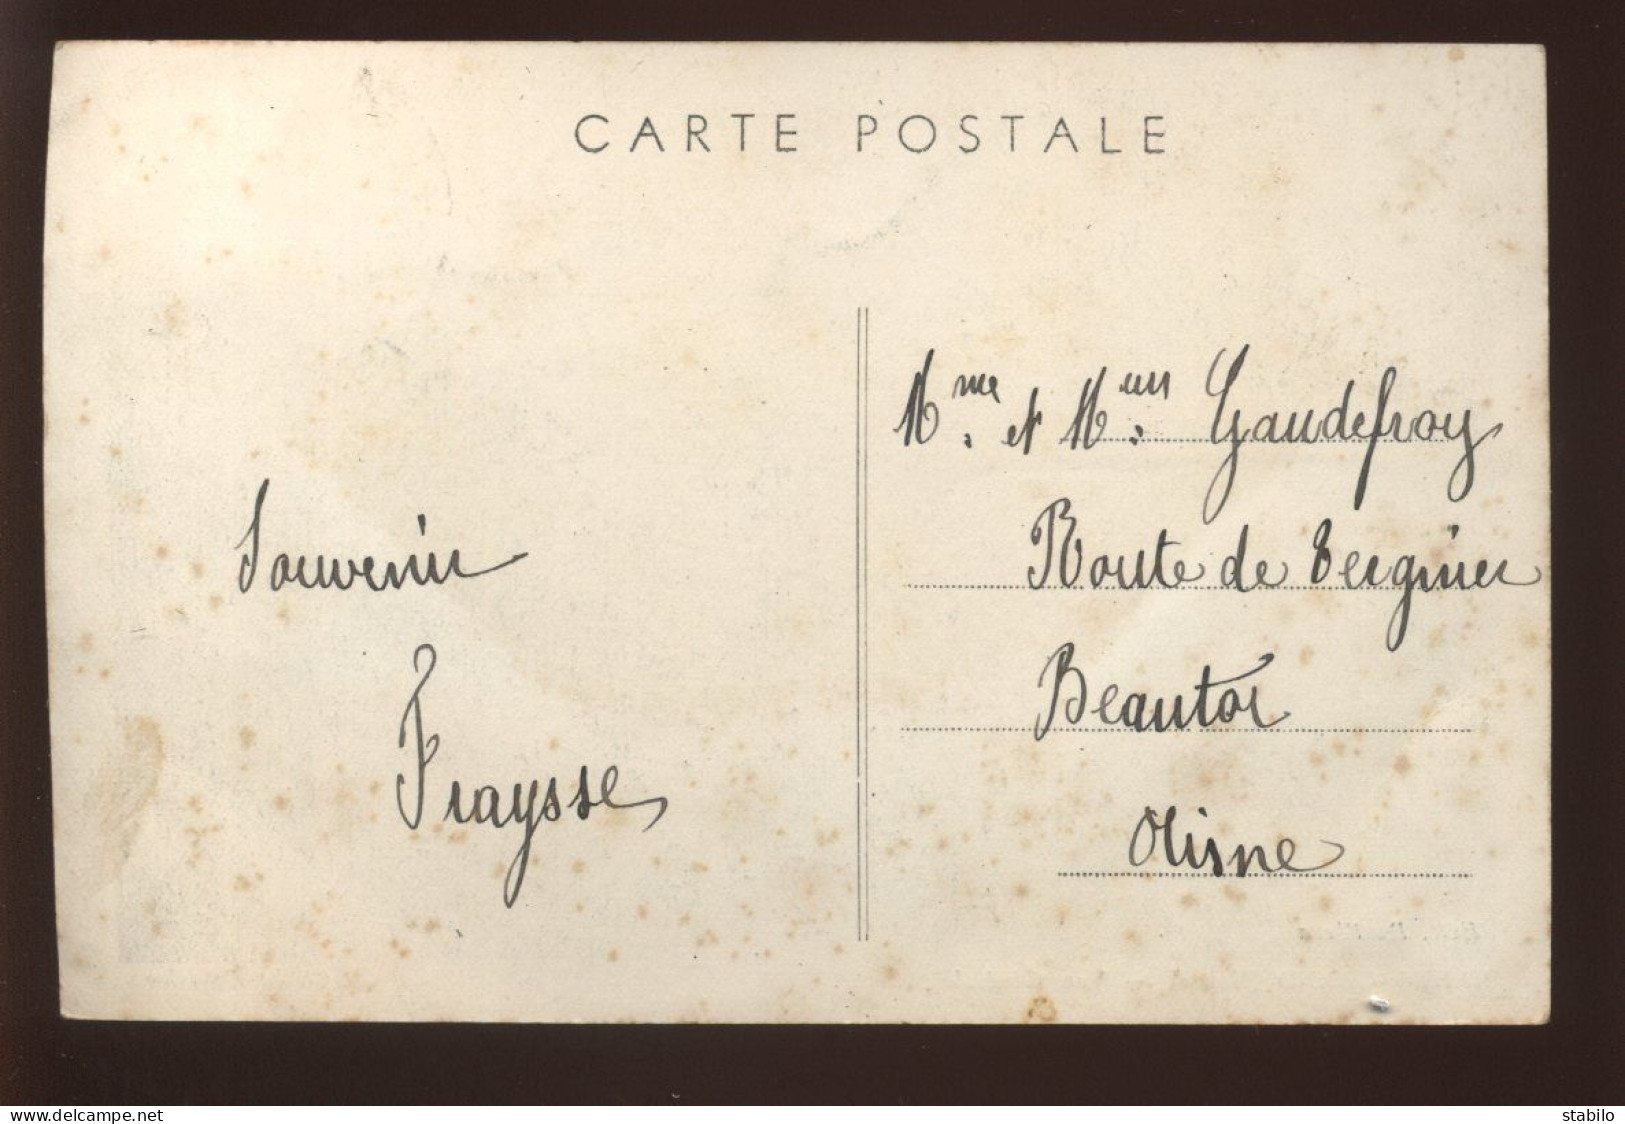 CARTE POSTALE
Souvenir
Fraysse
Mme. et Mr: Gaudefroy
Route de Tergnier
Beautor
Aisne
www.delcampe.net
stabilo